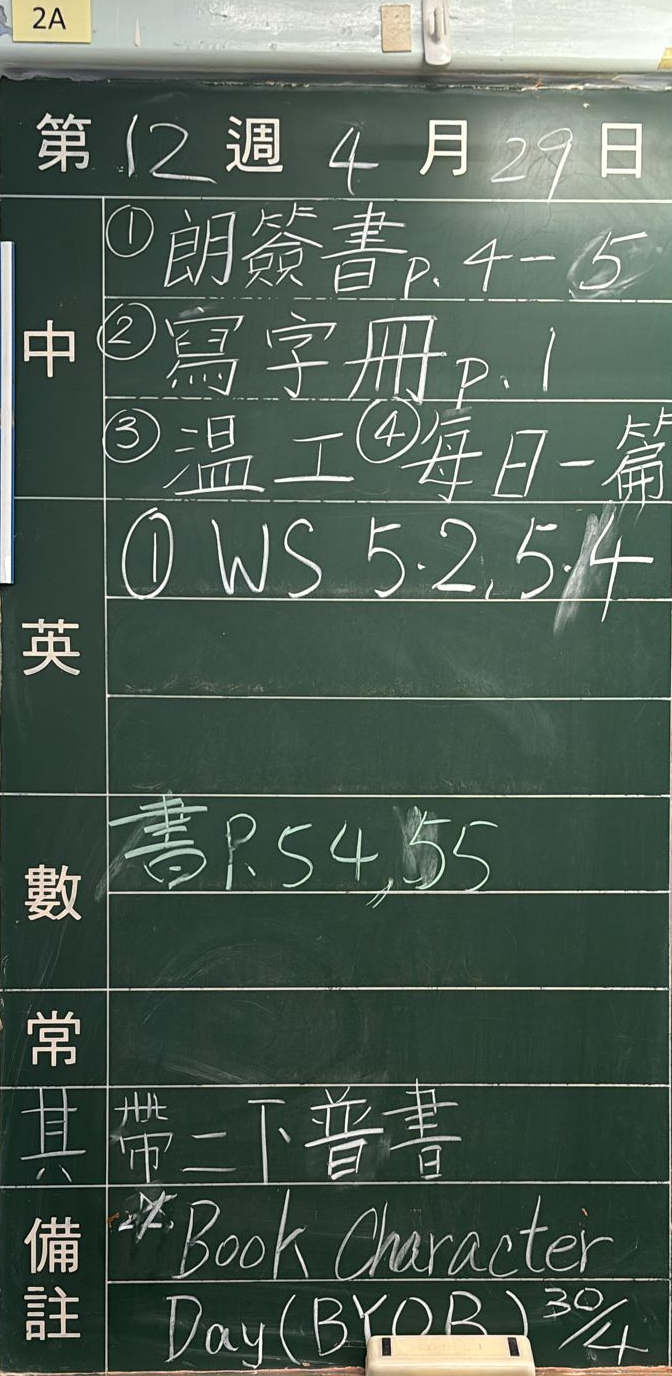 2A
第 12 週 4 月 29 日
中
① 朗簽書 p. 4-5
② 寫字冊 p. 1
③ 溫工 ④ 每日一篇
英
① WS 5.2, 5.4
數
書 P. 54, 55
常
其
帶二下普書
備註
* Book Character
Day (BYOB) 30/4